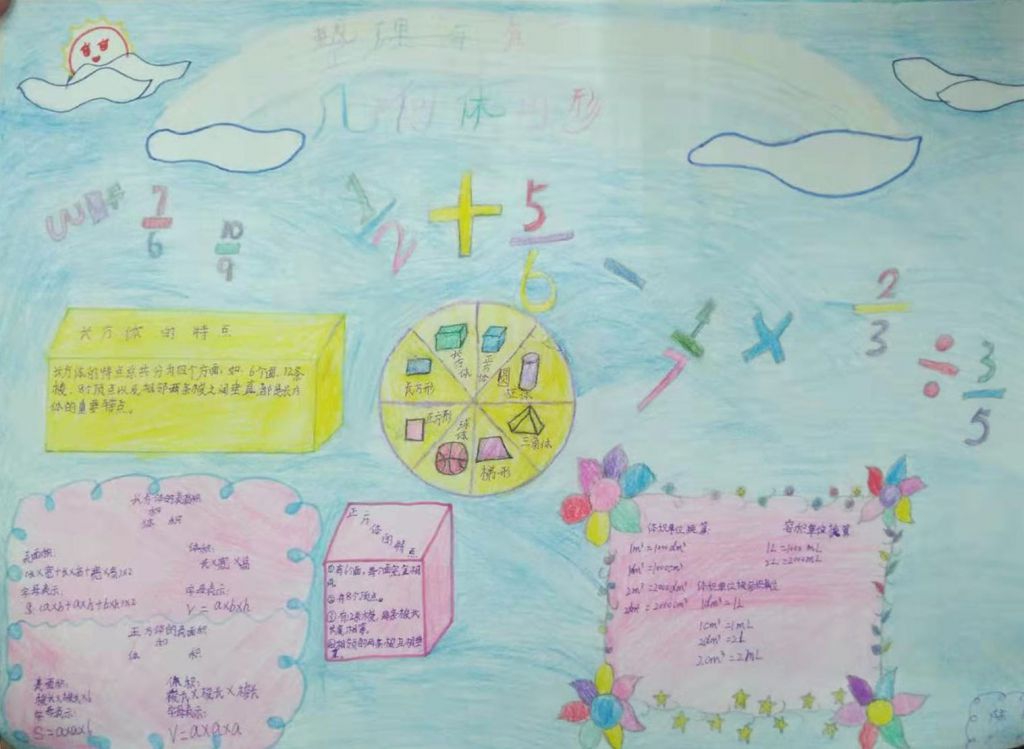 整理与复
几何体与形
7/6
10/9
1/2 + 5/6 -
1/7 × 2/3 ÷ 3/5
长方体的特点
长方体的特点总共分为四个方面,如:6个面,12条
棱,8个顶点以及相邻两条棱之间垂直,都是长方
体的重要特点。
长方体
正方体
圆柱体
三角体
梯形
球体
正方形
长方形
长方体的表面积
和
体 积
表面积:
(长×宽+长×高+宽×高)×2
字母表示:
S=(a×b+a×h+b×h)×2
体积:
长×宽×高
字母表示:
V=a×b×h
正方体的表面积
和
体 积
表面积:
棱长×棱长×6
字母表示:
S=a×a×6
体积:
棱长×棱长×棱长
字母表示:
V=a×a×a
正方体的特点
①有6个面,每个面完全相
同。
②有8个顶点。
③有12条棱,每条棱长
长度相等。
④相邻的两条棱互相垂
直。
体积单位换算
1m³=1000dm³
1dm³=1000cm³
2m³=2000dm³
2dm³=2000cm³
容积单位换算
1L=1000mL
2L=2000mL
1dm³=1L
1cm³=1mL
2dm³=2L
2cm³=2mL